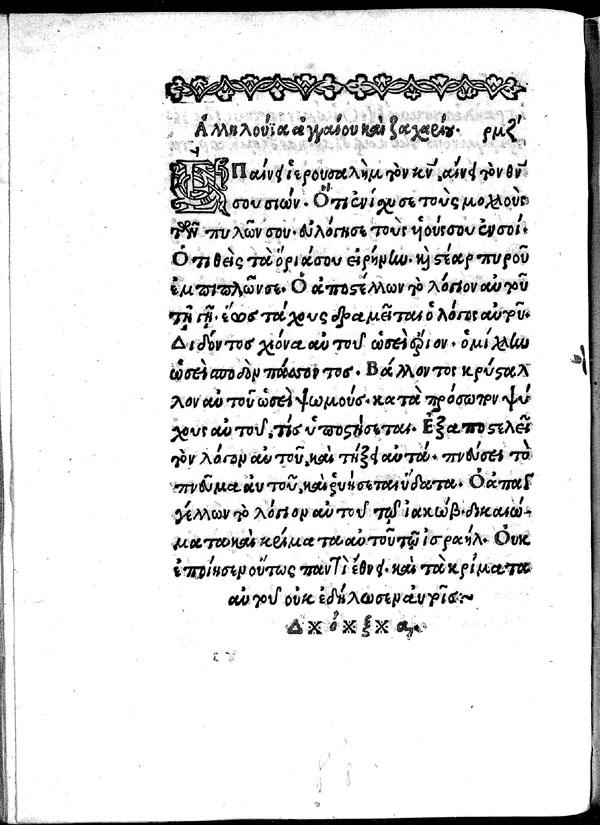 Ἀλληλούϊα ἀγγαίου καὶ ζαχαρίου. ρμζʹ
Ἐπαίνει ἱερουσαλὴμ τὸν κν̄, αἴνει τὸν θν̄
σου σιών. Ὅτι ἐνίχυσε τοὺς μοχλοὺς
τῶν πυλῶν σου. εὐλόγησε τοὺς ὑιούς σου ἐν σοί.
Ὁ τιθεὶς τὰ ὅριά σου εἰρήνην. κὴ στέαρ πυροῦ
ἐμπιπλῶν σε. Ὁ ἀποστέλλων τὸ λόγιον αὐτοῦ
τῇ γῇ. ἕως τάχους δραμεῖται ὁ λόγος αὐτοῦ.
Διδόντος χιόνα αὐτοῦ ὡσεὶ ἔριον. ὁμίχλην
ὡσεὶ σποδὸν πάσσοντος. Βάλλοντος κρύσταλ
λον αὐτοῦ ὡσεὶ ψωμούς. κατὰ πρόσωπον ψύ
χους αὐτοῦ, τίς ὑποστήσεται. Ἐξαποστελεῖ
τὸν λόγον αὐτοῦ, καὶ τήξει αὐτά. πνεύσει τὸ
πνεῦμα αὐτοῦ, καὶ ῥυήσεται ὕδατα. Ὁ ἀπαγ
γέλλων τὸ λόγιον αὐτοῦ τῷ ἰακώβ. δικαιώ-
ματα καὶ κρίματα αὐτοῦ τῷ ἰσραήλ. Οὐκ
ἐποίησεν οὕτως παντὶ ἔθνει. καὶ τὰ κρίματα
αὐτοῦ οὐκ ἐδήλωσεν αὐτοῖς:~
Δ × ό × ξ × α,.